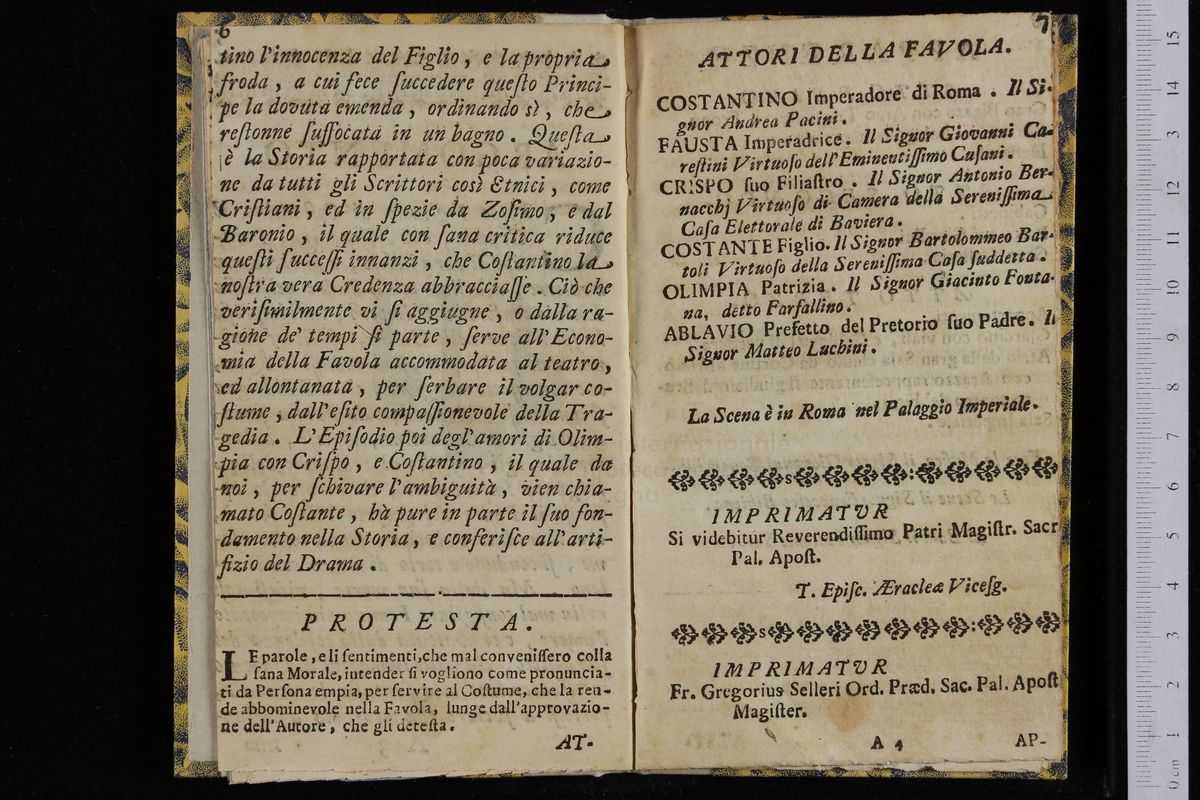 6
tino l'innocenza del Figlio, e la propria
froda, a cui fece ſuccedere queſto Princi-
pe la dovuta emenda, ordinando sì, che
reſtonne ſuffocata in un bagno. Queſta
è la Storia rapportata con poca variazio-
ne da tutti gli Scrittori così Etnici, come
Criſtiani, ed in ſpezie da Zoſimo, e dal
Baronio, il quale con ſana critica riduce
queſti ſucceſſi innanzi, che Coſtantino la
noſtra vera Credenza abbracciaſſe. Ciò che
veriſimilmente vi ſi aggiugne, o dalla ra-
gione de' tempi ſi parte, ſerve all'Econo-
mia della Favola accommodata al teatro,
ed allontanata, per ſerbare il volgar co-
ſtume, dall'eſito compaſſionevole della Tra-
gedia. L'Epiſodio poi degl'amori di Olim-
pia con Criſpo, e Coſtantino, il quale da
noi, per ſchivare l'ambiguità, vien chia-
mato Coſtante, hà pure in parte il ſuo fon-
damento nella Storia, e conferiſce all'arti-
fizio del Drama.
PROTESTA.
LE parole, e li ſentimenti, che mal conveniſſero colla
ſana Morale, intender ſi vogliono come pronuncia-
ti da Perſona empia, per ſervire al Coſtume, che la ren-
de abbominevole nella Favola, lunge dall'approvazio-
ne dell'Autore, che gli deteſta.
AT-
7
ATTORI DELLA FAVOLA.
COSTANTINO Imperadore di Roma. Il Si-
gnor Andrea Pacini.
FAUSTA Imperadrice. Il Signor Giovanni Ca-
reſtini Virtuoſo dell'Eminentiſſimo Cuſani.
CRISPO ſuo Filiaſtro. Il Signor Antonio Ber-
nacchj Virtuoſo di Camera della Sereniſſima
Caſa Elettorale di Baviera.
COSTANTE Figlio. Il Signor Bartolommeo Bar-
toli Virtuoſo della Sereniſſima Caſa ſuddetta.
OLIMPIA Patrizia. Il Signor Giacinto Fonta-
na, detto Farfallino.
ABLAVIO Prefetto del Pretorio ſuo Padre. Il
Signor Matteo Luchini.
La Scena è in Roma nel Palaggio Imperiale.
IMPRIMATVR
Si videbitur Reverendiſſimo Patri Magiſtr. Sacr
Pal. Apoſt.
T. Epiſc. Æracleæ Viceſg.
IMPRIMATVR
Fr. Gregorius Selleri Ord. Præd. Sac. Pal. Apoſt
Magiſter.
A 4
AP-
0 cm 1 2 3 4 5 6 7 8 9 10 11 12 13 14 15